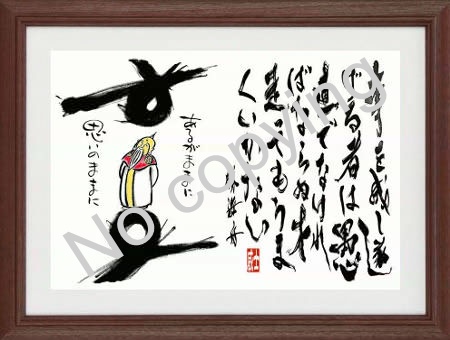 事を成し遂
げる者は愚
直でなけれ
ばならぬ才
走ってはうま
くいかない
勝海舟
あるがままに
思いのままに
No copying